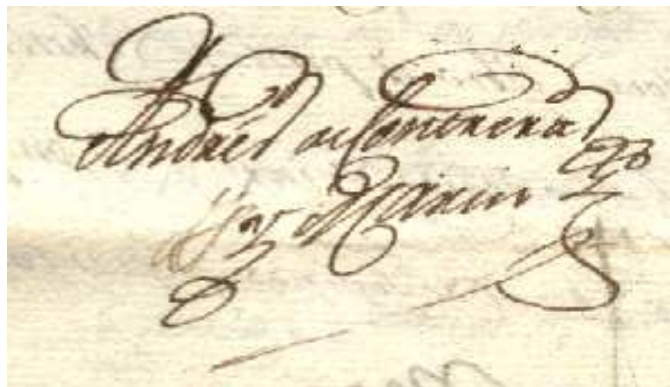 Andres de Contreras
y Marin